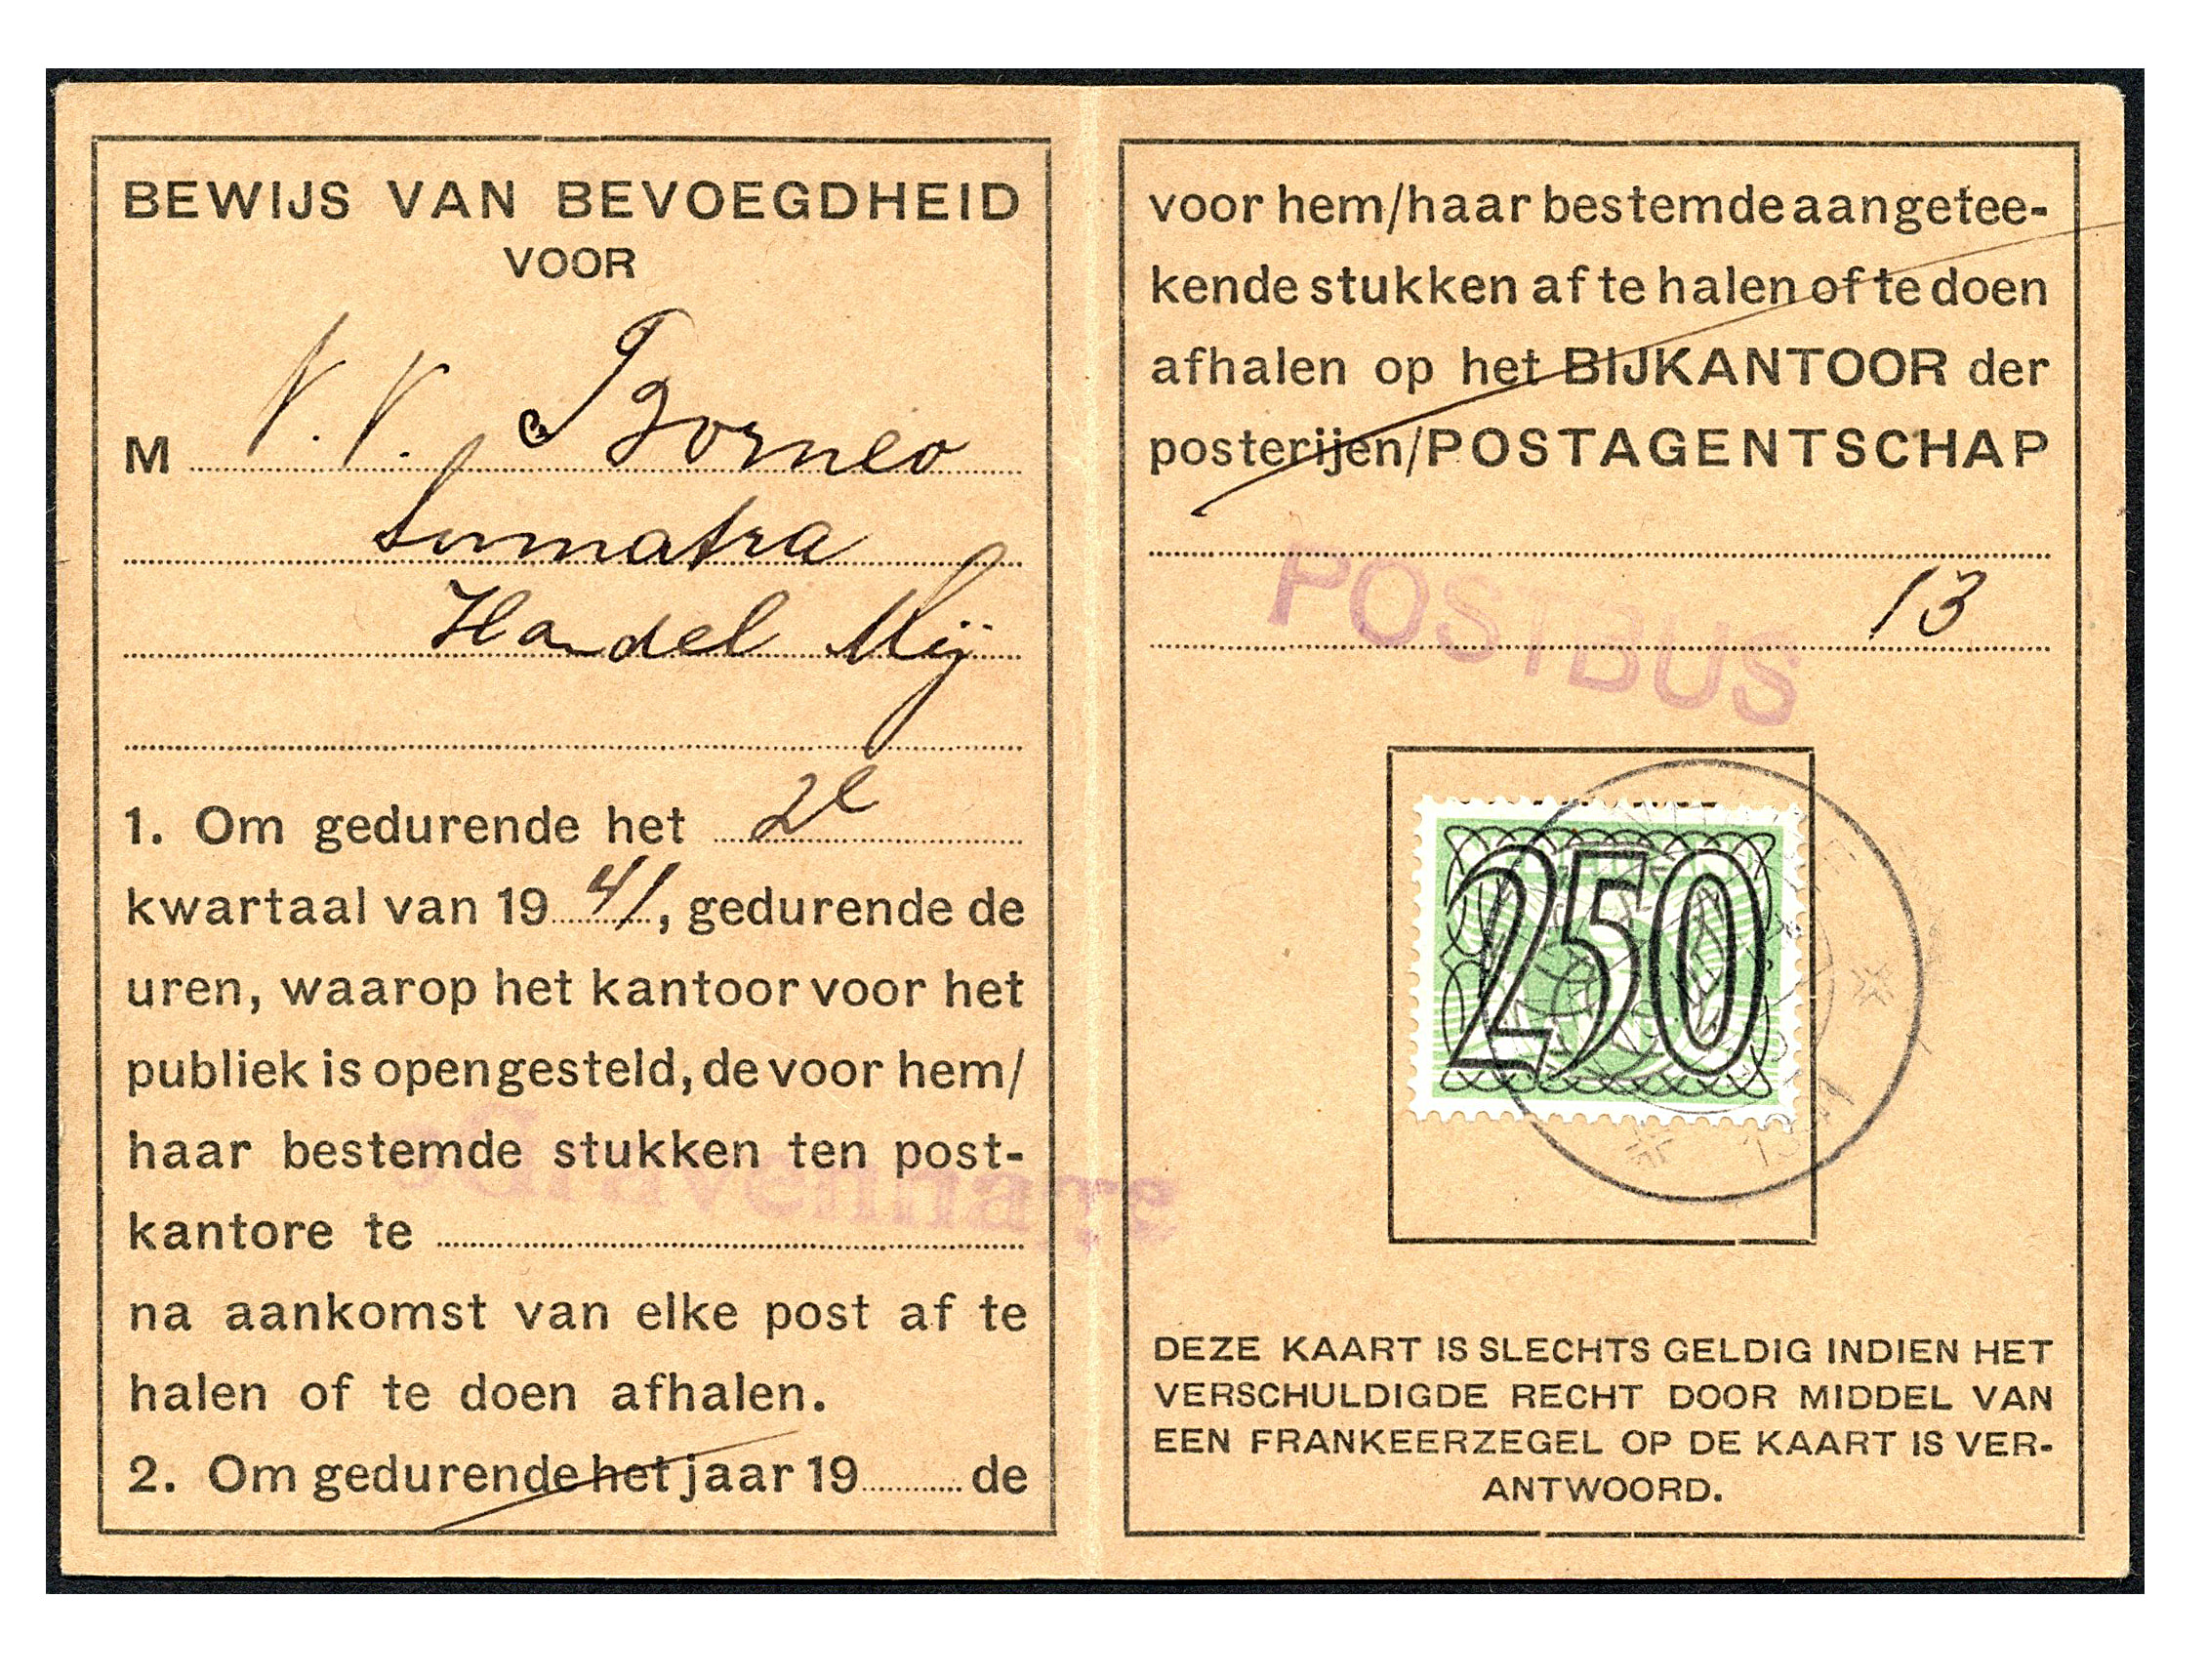 BEWIJS VAN BEVOEGDHEID
VOOR
M N.V. Borneo
Sumatra
Handel Mij
1. Om gedurende het 2e
kwartaal van 1941, gedurende de
uren, waarop het kantoor voor het
publiek is opengesteld, de voor hem/
haar bestemde stukken ten post-
kantore te
sGravenhage
na aankomst van elke post af te
halen of te doen afhalen.
2. Om gedurende het jaar 19 de
voor hem/haar bestemde aangetee-
kende stukken af te halen of te doen
afhalen op het BIJKANTOOR der
posterijen/POSTAGENTSCHAP
POSTBUS 13
250
1941
DEZE KAART IS SLECHTS GELDIG INDIEN HET
VERSCHULDIGDE RECHT DOOR MIDDEL VAN
EEN FRANKEERZEGEL OP DE KAART IS VER-
ANTWOORD.